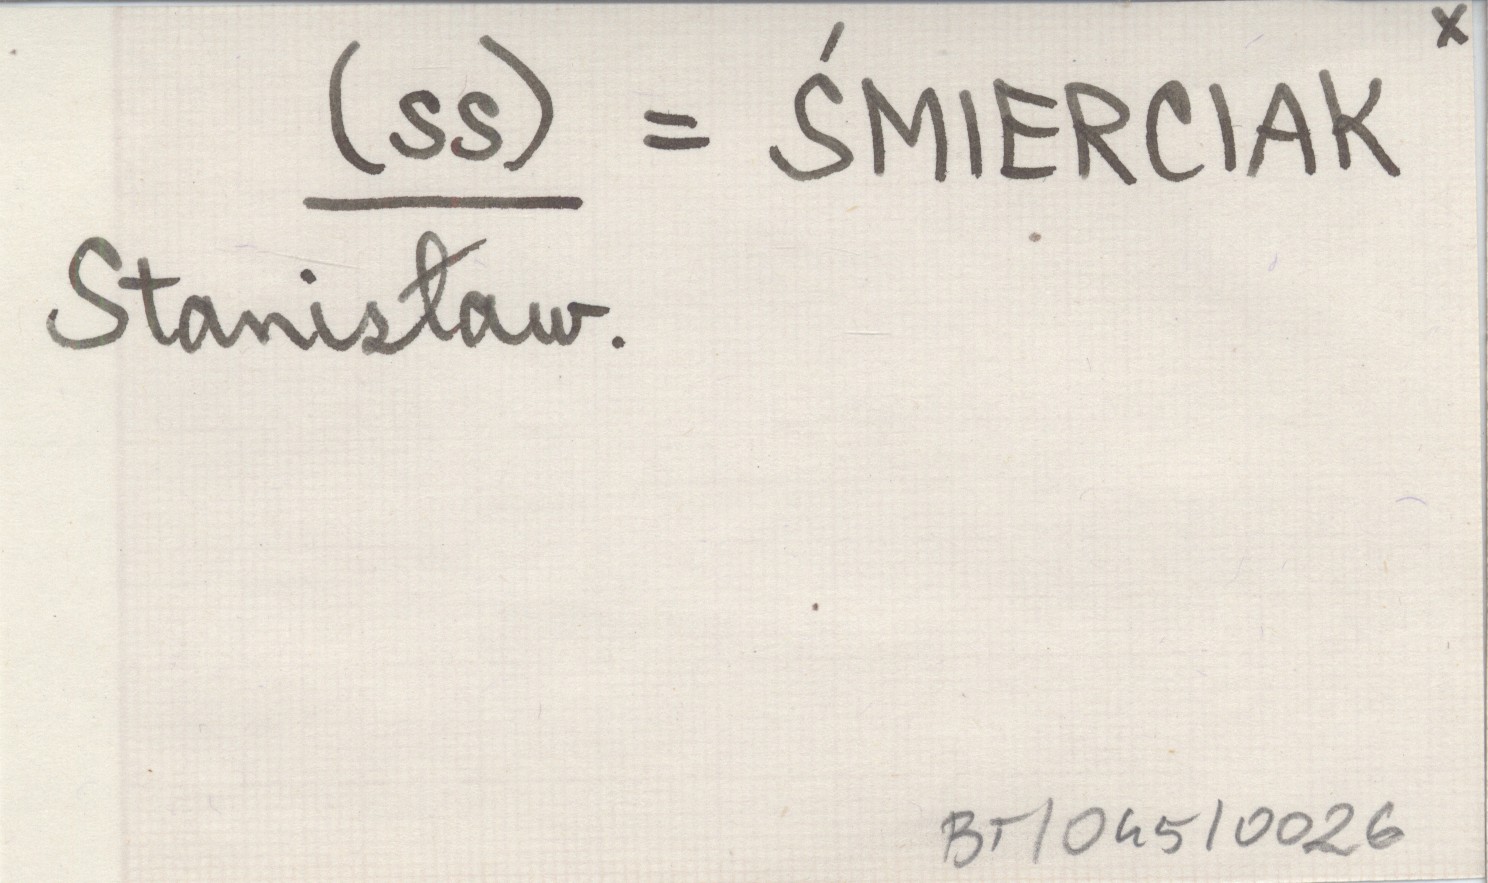 x
(ss) = ŚMIERCIAK
Stanisław.
BT/045/0026